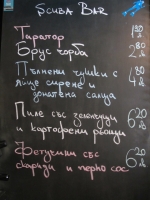 Scuba Bar
Таратор 1 80
Брус чорба 2 80
Пълнени чушки с
яйце сирене и 4 80
доматена салца
Пиле със зеленчуци 6 20
и картофени
Фетучини със
скариди и песто сос 6 20